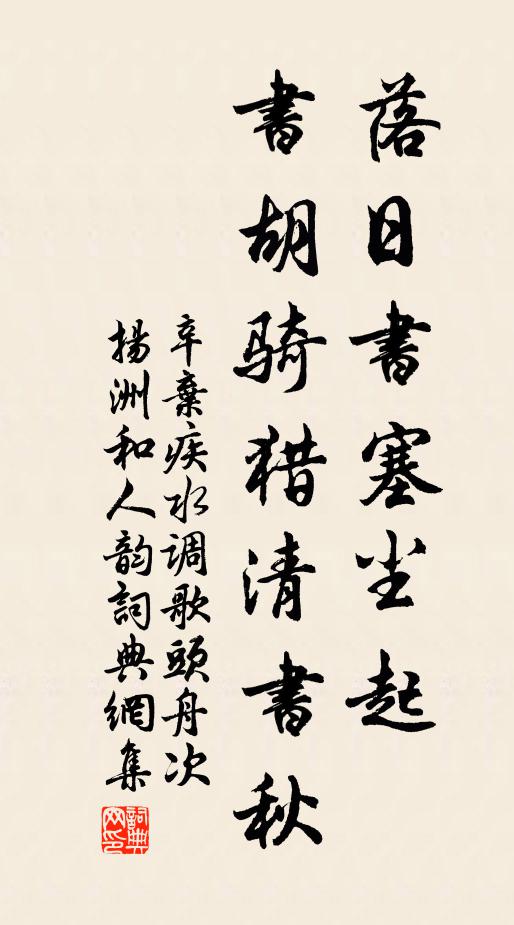 落日書塞尘起
書胡骑猎清書秋
辛棄疾水调歌頭舟次
揚洲和人韵詞典網集
詞典
网印